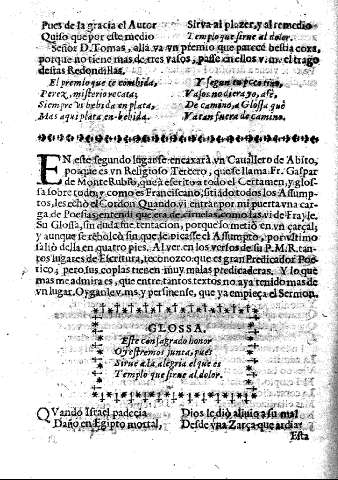 Pues de la gracia el Autor
Quiso que por este medio
Sirva al plazer, y al remedio
Templo que sirue al dolor.
Señor D. Tomas, allà va vn premio que parece bestia coxa,
porque no tiene mas de tres vasos, passe en ellos v.m. el trago
destas Redondillas.
El premio que te combida,
Perez, misterio recata;
Siempre vi bebida en plata,
Mas aqui plata en bebida.
Y segun
Vasos no diera yo, à fè,
De camino, a Glossa què
Vàtan fuera de camino.
EN este segundo lugar se encaxarà vn Cauallero de Abito,
poaque es vn Religioso Tercero, que se llama Fr. Gaspar
de Monte Rubio, que à escrito a todo el Certamen, y glos-
sa sobre todo, y como es Franciscano, sitiàdo todos los Assump-
tos, les echò el Cordon. Quando vi entrar por mi puerta vna car-
ga de Poesias, entendi que era de ciruelas, como las vì de Frayle.
Su Glossa, sin duda fue tentacion, porque lo metiò en vn çarçal;
y aunque se rebolcò sin que le picasse el Assumpto, por vltimo
saliò della en quatro pies. Al ver en los versos de su P. M. R. tan-
tos lugares de Escritura, reconozco que es gran Predicador Poe-
tico; pero sus coplas tienen muy malas predicaderas. Y lo que
mas me admira es, que entre tantos textos no aya tenido mas de
vn lugar. Oyganle v.ms. y persinense, que ya empieça el Sermon.
GLOSSA.
Este consagrado honor
Oy estremos junta, pues
Sirue a la alegria el que es
Templo que sirue al dolor.
QVando Israel padecia
Daño en Egipto mortal,
Dios le diò aliuio a su mal
Desde vna Zarça que ardia:
Esta